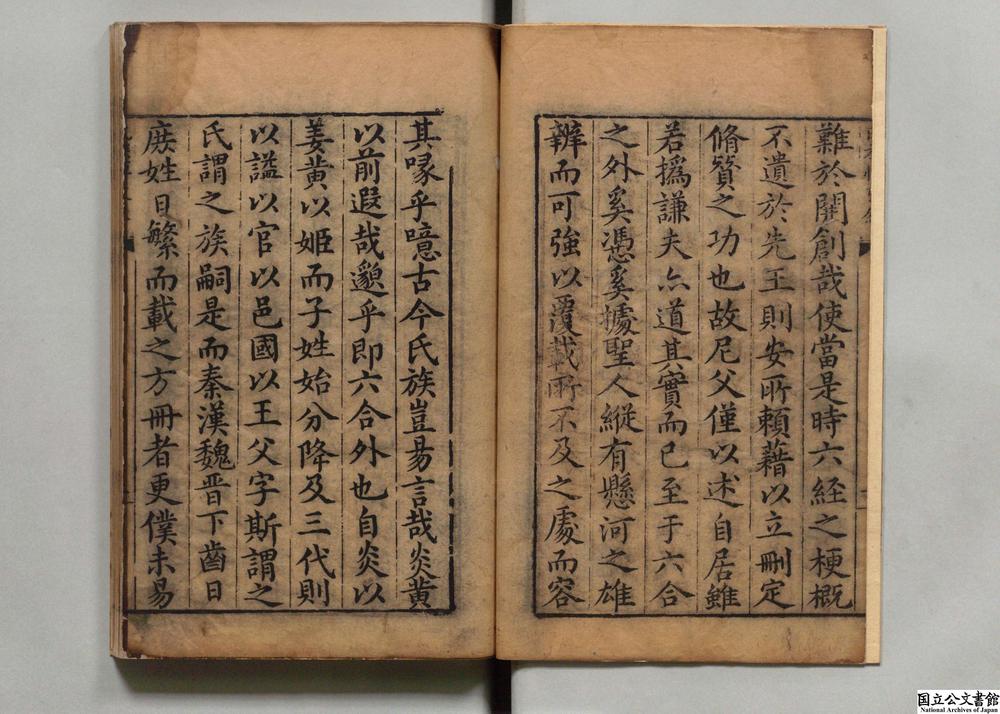 難於開創哉使當是時六経之梗概
不遺於先王則安所頼藉以立刪定
脩贊之功也故尼父僅以述自居雖
若撝謙夫亦道其實而已至于六合
之外奚憑奚據聖人縱有懸河之雄
辨而可強以覆載所不及之處而容
其喙乎噫古今氏族豈易言哉炎黃
以前遐哉邈乎即六合外也自炎以
姜黃以姬而子姓始分降及三代則
以謚以官以邑國以王父字斯謂之
氏謂之族嗣是而秦漢魏晋下齒日
庶姓日繁而載之方冊者更僕未易
国立公文書館
National Archives of Japan